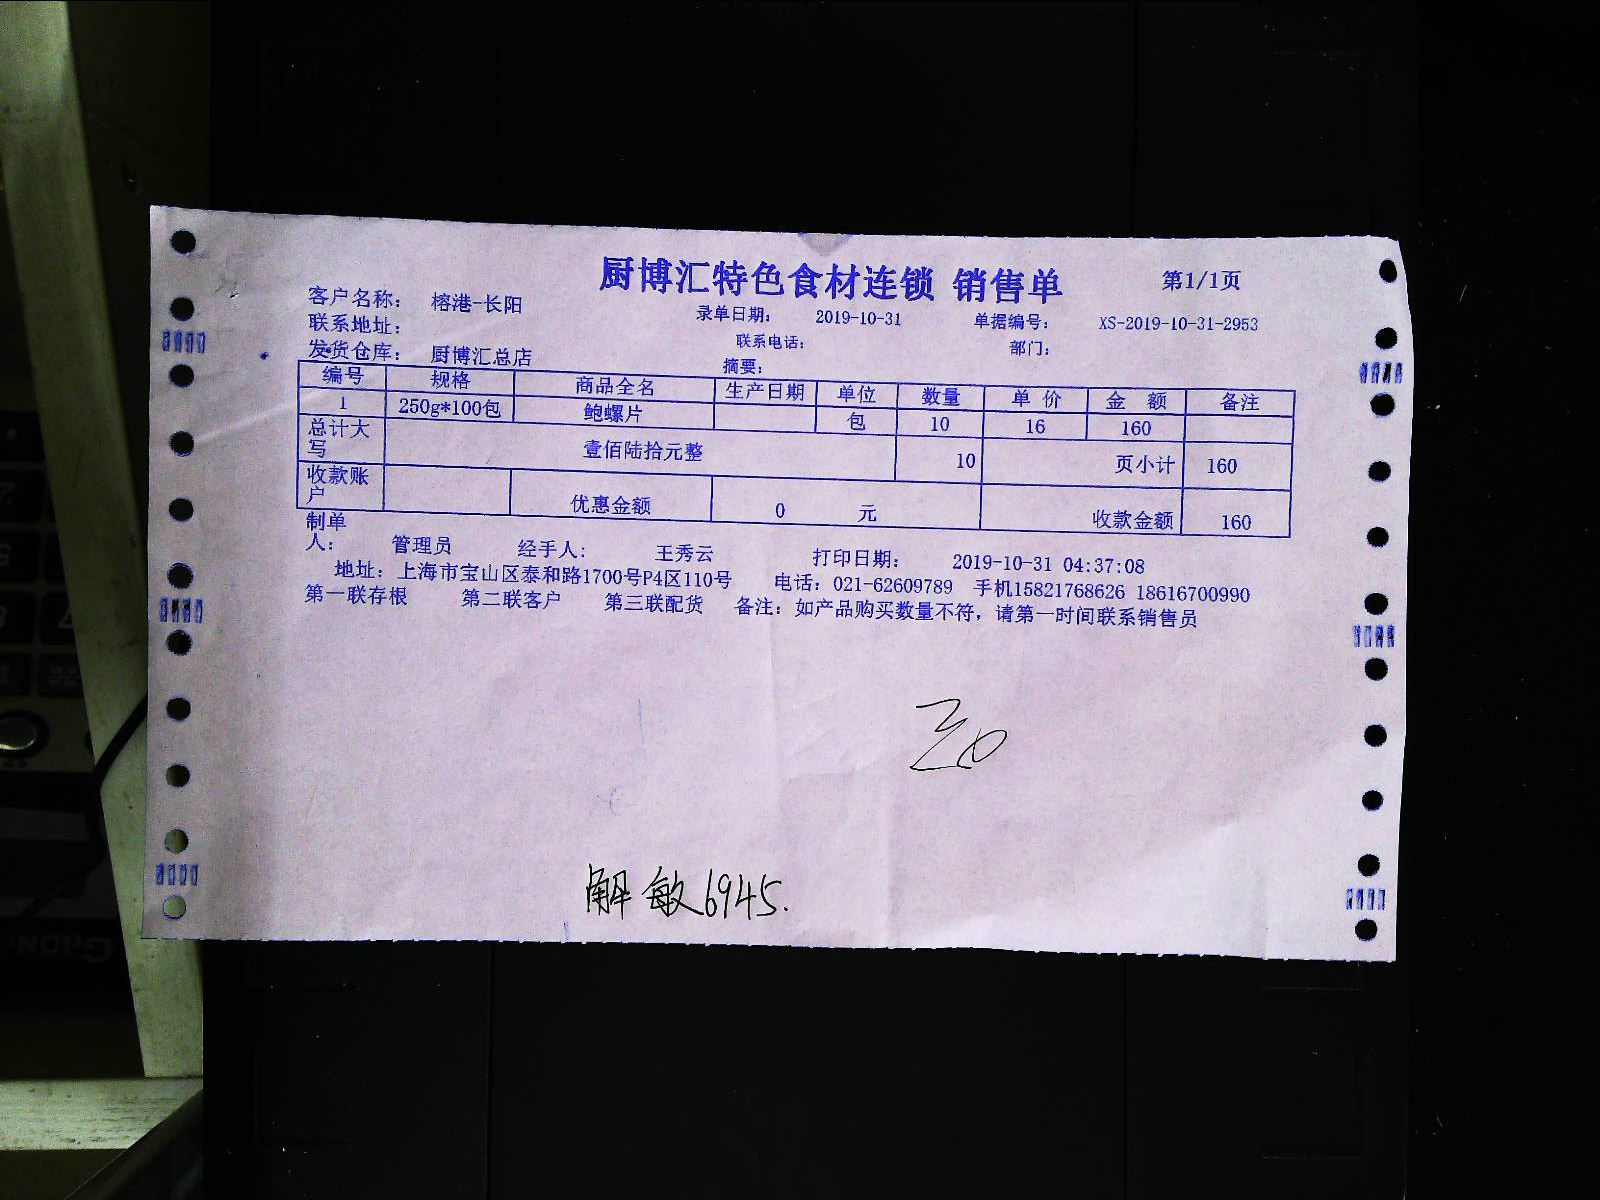 厨博汇特色食材连锁 销售单 第1/1页
客户名称： 榕港-长阳 录单日期： 2019-10-31 单据编号： XS-2019-10-31-2953
联系地址： 联系电话： 部门：
发货仓库： 厨博汇总店 摘要：
编号 规格 商品全名 生产日期 单位 数量 单 价 金 额 备注
1 250g*100包 鲍螺片 包 10 16 160
总计大写 壹佰陆拾元整 10 页小计 160
收款账户 优惠金额 0 元 收款金额 160
制单人： 管理员 经手人： 王秀云 打印日期： 2019-10-31 04:37:08
地址：上海市宝山区泰和路1700号P4区110号 电话：021-62609789 手机15821768626 18616700990
第一联存根 第二联客户 第三联配货 备注：如产品购买数量不符，请第一时间联系销售员
解敏6945.